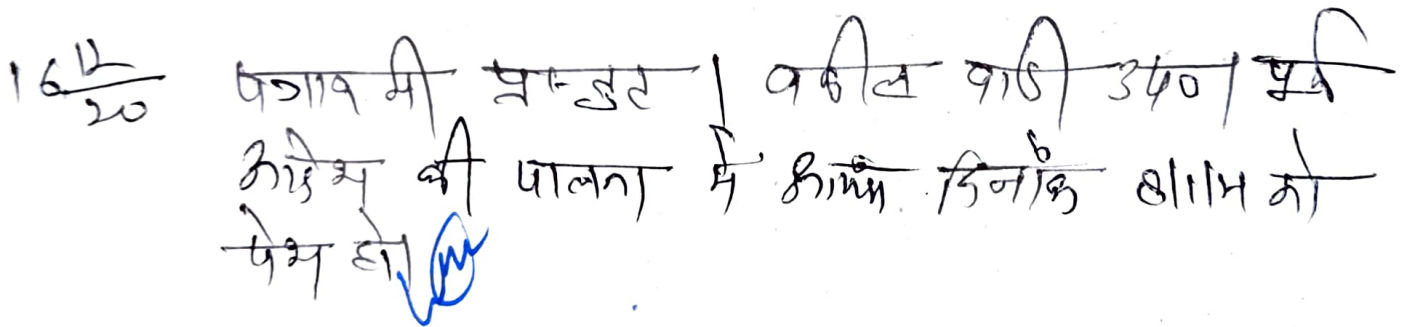 16 12/20 पत्रावली प्रस्तुत। वकील वादी उप०। पूर्व
आदेश की पालना में दिनांक 8/1/21 को
पेश हो।